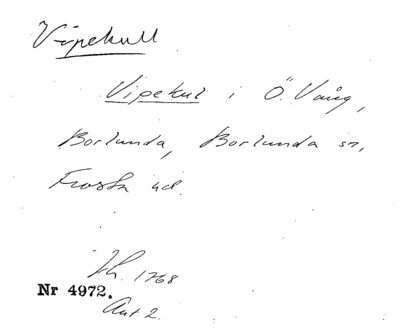 Vipekull
Vipekul i Ö. Vång,
Borlunda, Borlunda sn,
Frosta hd.
Lh. 1768
Nr 4972.
Akt 2.